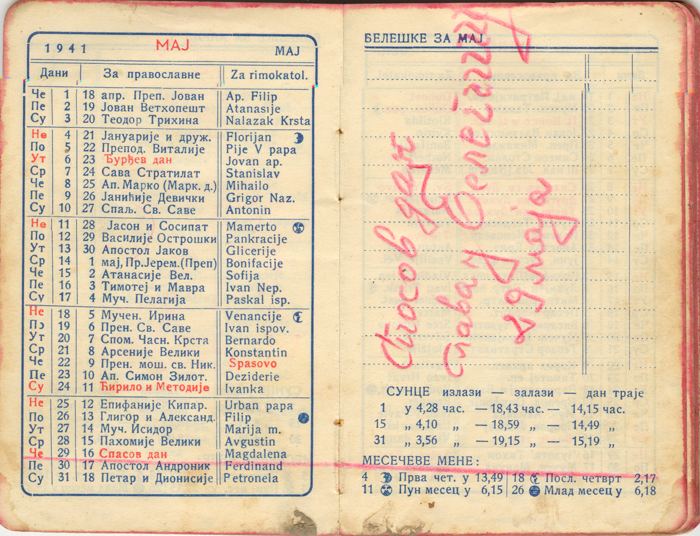 1941 МАЈ МАЈ
Дани За православне Za rimokatol.
Че 1 18 апр. Преп. Јован Ap. Filip
Пе 2 19 Јован Ветхопешт Atanasije
Су 3 20 Теодор Трихина Nalazak Krsta
Не 4 21 Јануарије и друж. Florijan
По 5 22 Препод. Виталије Pije V papa
Ут 6 23 Ђурђев дан Jovan ap.
Ср 7 24 Сава Стратилат Stanislav
Че 8 25 Ап. Марко (Марк. д.) Mihailo
Пе 9 26 Јанићије Девички Grigor Naz.
Су 10 27 Спаљ. Св. Саве Antonin
Не 11 28 Јасон и Сосипат Mamerto
По 12 29 Василије Острошки Pankracije
Ут 13 30 Апостол Јаков Glicerije
Ср 14 1 мај, Пр.Јерем.(Преп) Bonifacije
Че 15 2 Атанасије Вел. Sofija
Пе 16 3 Тимотеј и Мавра Ivan Nep.
Су 17 4 Муч. Пелагија Paskal isp.
Не 18 5 Мучен. Ирина Venancije
По 19 6 Прен. Св. Саве Ivan ispov.
Ут 20 7 Спом. Часн. Крста Bernardo
Ср 21 8 Арсеније Велики Konstantin
Че 22 9 Прен. мош. св. Ник. Spasovo
Пе 23 10 Ап. Симон Зилот. Deziderie
Су 24 11 Ћирило и Методије Ivanka
Не 25 12 Епифаније Кипар. Urban papa
По 26 13 Глигор и Александ. Filip
Ут 27 14 Муч. Исидор Marija m.
Ср 28 15 Пахомије Велики Avgustin
Че 29 16 Спасов дан Magdalena
Пе 30 17 Апостол Андроник Ferdinand
Су 31 18 Петар и Дионисије Petronela
БЕЛЕШКЕ ЗА МАЈ
Спасов дан
Слава у
29 маја
СУНЦЕ излази — залази — дан траје
1 у 4,28 час. — 18,43 час. — 14,15 час.
15 „ 4,10 „ — 18,59 „ — 14,49 „
31 „ 3,56 „ — 19,15 „ — 15,19 „
МЕСЕЧЕВЕ МЕНЕ:
4 Прва чет. у 13,49 18 Посл. четврт 2,17
11 Пун месец у 6,15 26 Млад месец у 6,18